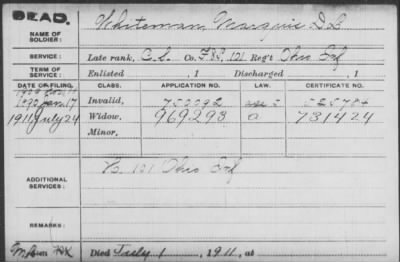 DEAD.
NAME OF SOLDIER: Whiteman, Marquis D L
SERVICE: Late rank, Co. F&S, 101 Reg't Ohio Inf
TERM OF SERVICE: Enlisted , 1 Discharged , 1
DATE OF FILING. CLASS. APPLICATION NO. LAW. CERTIFICATE NO.
1890 Jan 17 Invalid, 753092 525784
1911 July 24 Widow, 969293 a 731424
Minor,
ADDITIONAL SERVICES: 101 Ohio Inf
REMARKS:
Died July 1, 1911, at